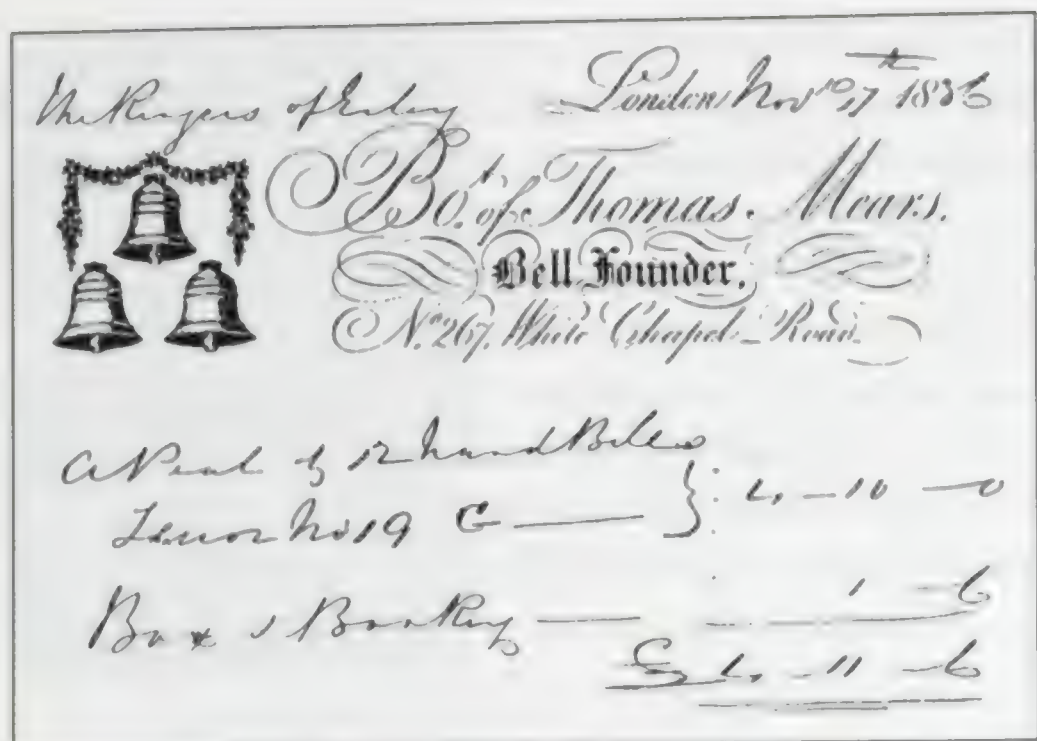 The Ringers of
London Novr 17th 1836
Bot. of Thomas Mears.
Bell Founder.
No. 267, White Chapel Road.
A Peal of 12 hand Bells
Tenor No 19 G } 4 - 10 - 0
Box & Booking 1 - 6
£ 4 - 11 - 6